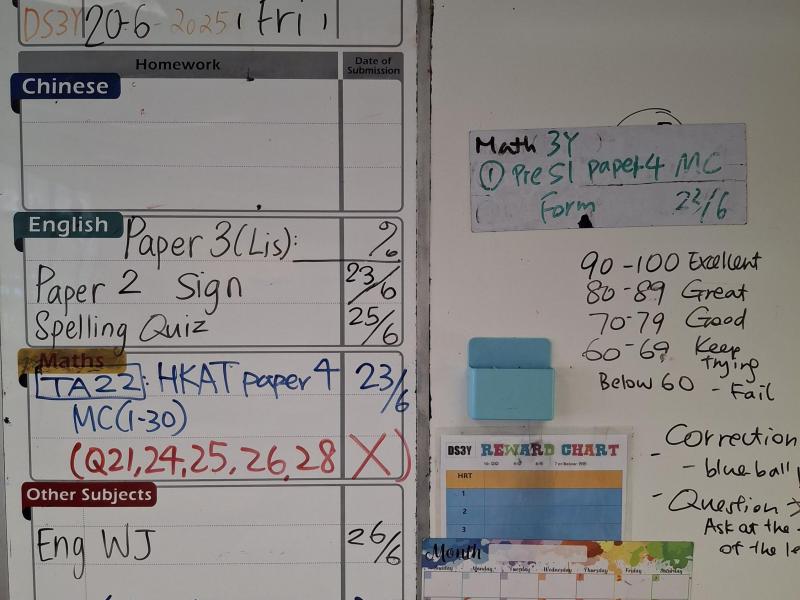 DS3Y 20-6-2025, Fri,
Homework Date of Submission
Chinese
English Paper 3 (Lis): ?
Paper 2 Sign 23/6
Spelling Quiz 25/6
Maths
TA22: HKAT paper 4 23/6
MC(1-30)
(Q21,24,25,26,28 X)
Other Subjects
Eng WJ 26/6
Math 3Y
① Pre S1 paper 4 MC
Form 23/6
90-100 Excellent
80-89 Great
70-79 Good
60-69 Keep trying
Below 60 - Fail
DS3Y REWARD CHART
HRT
1
2
3
Month
Monday Tuesday Wednesday Thursday Friday Saturday
- Correction
- blue ball
- Question →
Ask at the
of the